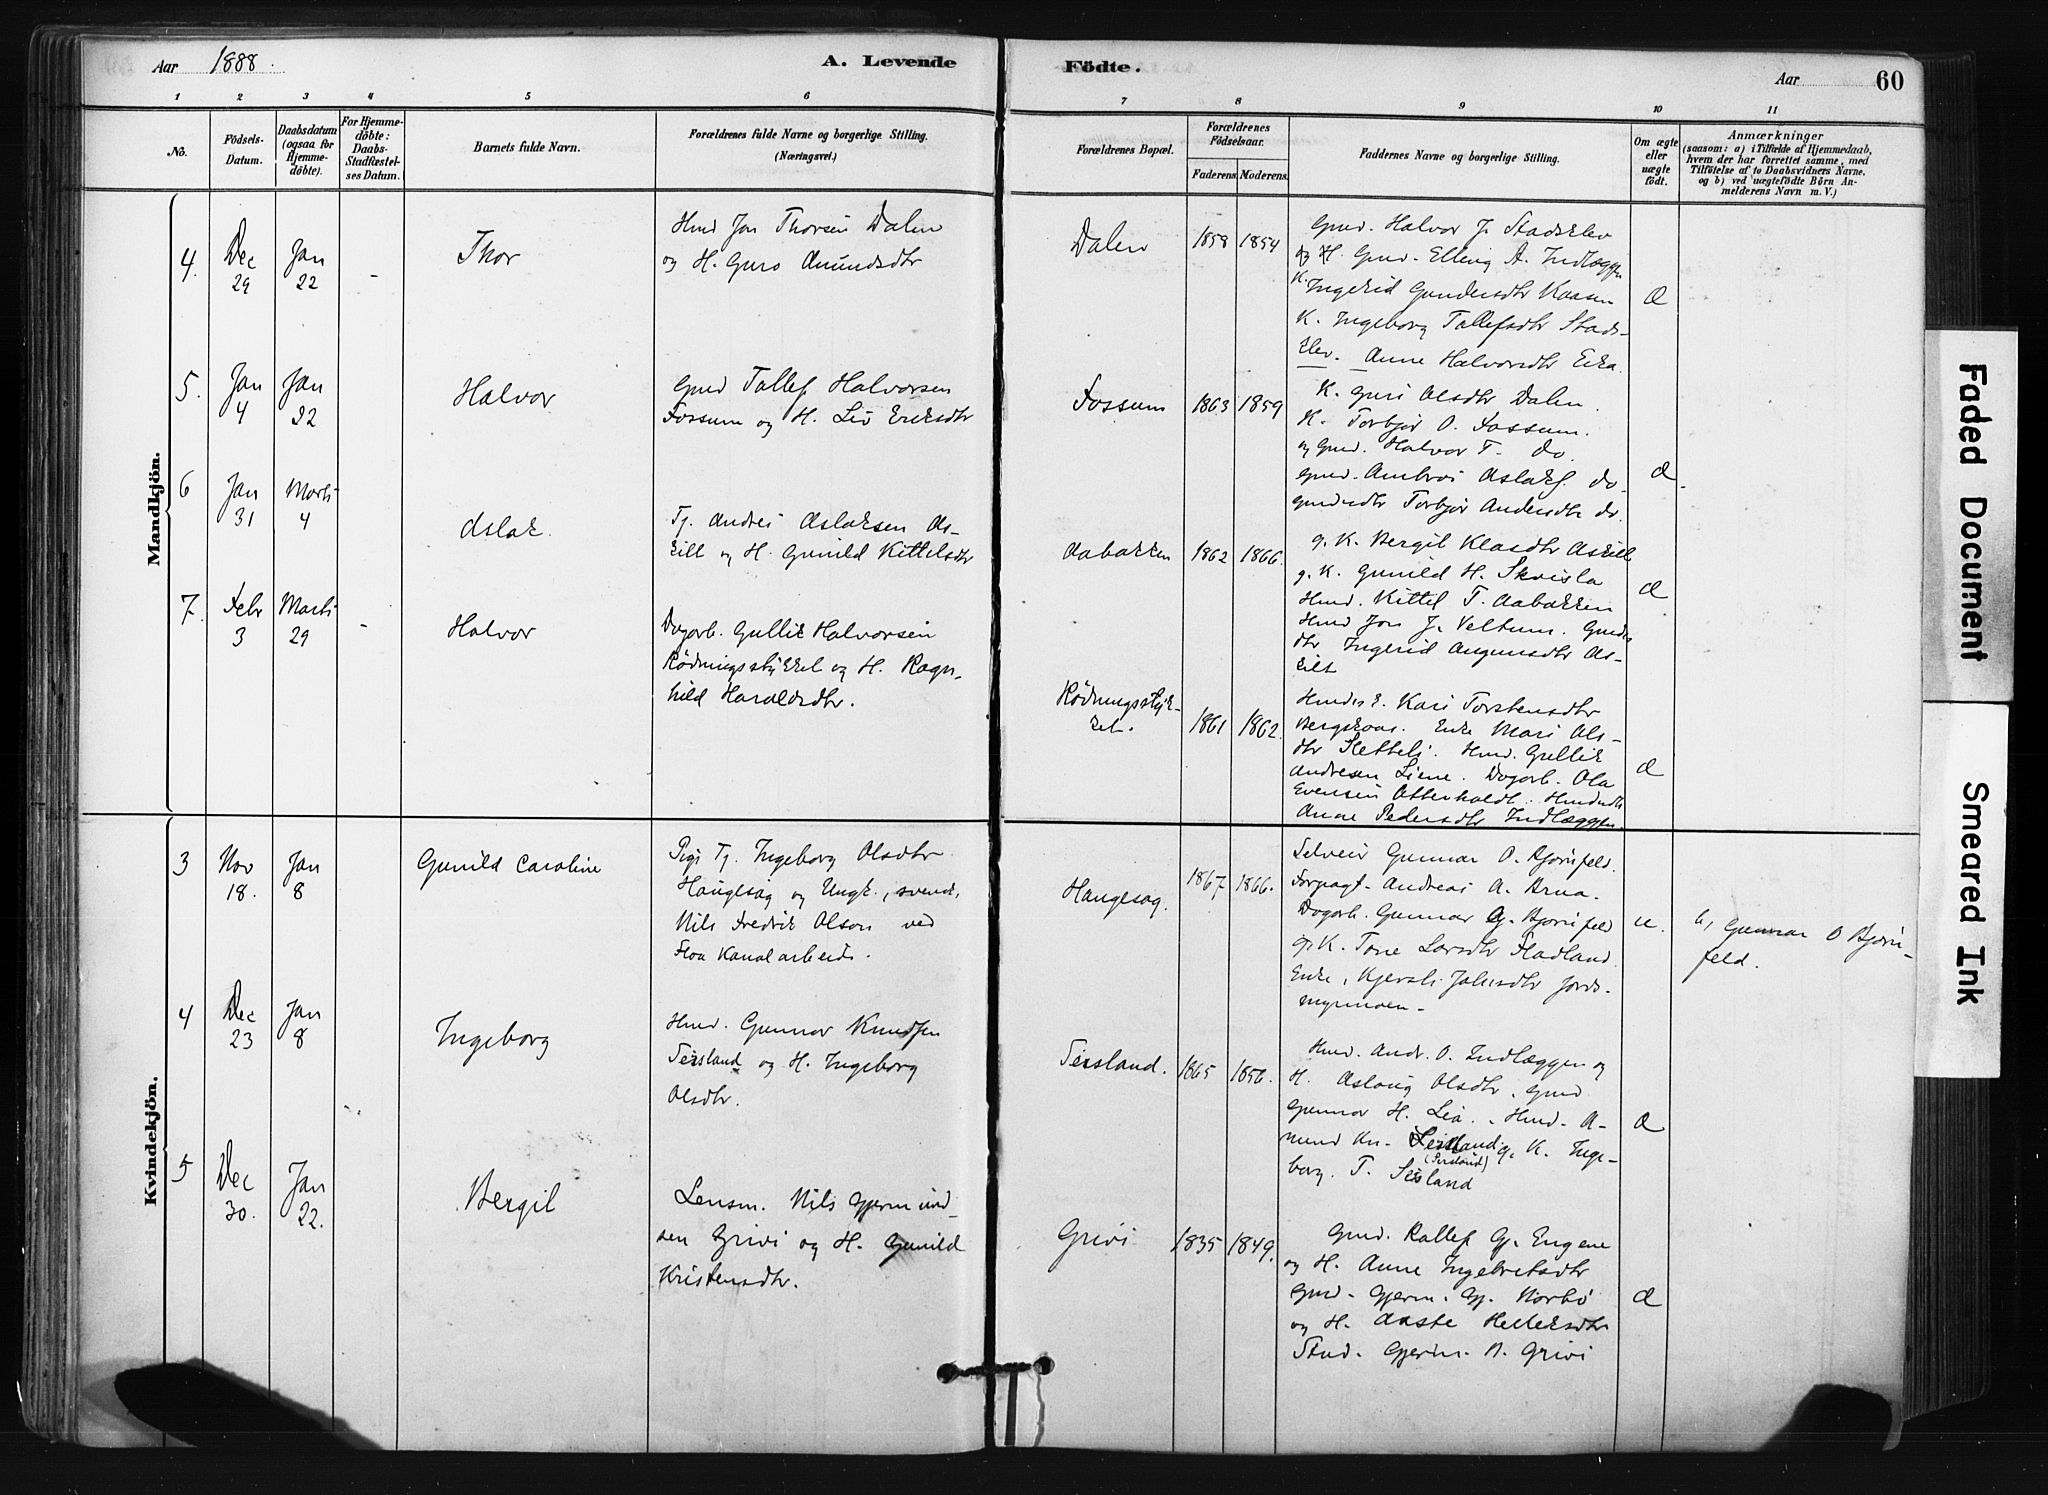 Aar 1888.
A. Levende Födte.
Aar 60
1 2 3 4 5 6 7 8 9 10 11
No.
Födsels-
Datum.
Daabsdatum
(ogsaa for
Hjemme-
døbte).
For Hjemme-
døbte:
Daabs-
Stadfæstel-
ses Datum.
Barnets fulde Navn.
Forældrenes fulde Navne og borgerlige Stilling.
(Næringsvei.)
Forældrenes Bopæl.
Forældrenes
Födselsaar.
Faderens. Moderens.
Faddernes Navne og borgerlige Stilling.
Om ægte
eller
uægte
født.
Anmærkninger
(saasom: a) i Tilfælde af Hjemmedaab,
hvem der har forrettet samme, med
Tilföielse af to Daabsvidners Navne.
og b) ved uægtefödte Börn An-
melderens Navn m. V.)
Mandkjön.
4. Dec 29 Jan 22 - Thor
Hmd Jon Thorsen Dalen
og H. Guro Amundsdtr
Dalen 1858 1854
Gmd. Halvor J. Stadsklev
og H. Gmd. Elling A. Indlæggen
K. Ingerid Gundersdtr Kaasen
K. Ingeborg Tollefsdtr Stads-
klev. Anne Halvorsdtr Eika.
Æ
5. Jan 4 Jan 22 Halvor
Gmd Tollef Halvorsen
Fossum og H. Liv Eriksdtr
Fossum 1863 1859
K. Guri Olsdtr Dalen.
K. Torbjør O. Fossum.
og Gmd. Halvor T. do.
Gmd. Ambros Aslaks. do.
Gmdsdtr Torbjør Andersdtr do.
Æ.
6 Jan 31 Marts 4 Aslak.
Tj. Andres Aslaksen As-
kilt og H. Gunild Kittelsdtr
Aabakken 1862 1866.
g. K. Bergit Klasdtr Askilt
g. K. Gunild H. Skvisla
Hmd. Kittel T. Aabakken
Hmd Jon J. Veltum. Gmds
dtr Ingerid Aagunsdtr As-
kilt
Æ
7. Febr 3 Marts 29 - Halvor
Dagarb. Gullik Halvorsen
Rødningsstykket og H. Ragn-
hild Haraldsdtr.
Rødningsstyk-
ket. 1861 1862.
Hmdsk. Kari Torstensdtr
Bergskaas. Enke Mari Ols-
dtr Sletteli. Hmd. Gullik
Andresen Liene. Dagarb. Ola
Evensen Otterholdt. Hmdsdtr
Anne Pedersdtr Indlæggen.
Æ
Kvindekjön.
3 Nov 18. Jan 8 Gunild Caroline
Pige Tj. Ingeborg Olsdtr
Haugesag og Ungk., svensk,
Nils Fredrik Olson ved
Flaa Kanalarbeide.
Haugesag. 1867 1866.
Selveier Gunnar O. Bjørnfeld.
Forpagt. Andreas A. Brua.
Dagarb. Gunnar G. Bjørnfeld
g. K. Tone Larsdtr Fladland.
Enke, Kjersti Johsdtr Jords-
myrmoen.
u.
b, Gunnar O Bjørn-
feld.
4 Dec 23 Jan 8 Ingeborg
Hmd. Gunnar Knudsen
Seisland og H. Ingeborg
Olsdtr.
Seisland. 1865 1856.
Hmd. Andr. O. Indlæggen og
H. Aslaug Olsdtr, Gmd
Gunnar H. Lia., Hmd. A-
mund Kn. Seisland g. K. Inge-
(Seisland)
borg. T. Seisland
Æ
5 Dec 30. Jan 22. Bergit
Lensm. Nils Gjermund-
sen Grivi og H. Gunild
Kristensdtr.
Grivi 1835 1849.
Gmd. Rollef G. Engene
og H. Anne Ingebretsdtr
Gmd. Gjerm. Gj. Norbø
og H. Aaste Helleksdtr
Stud. Gjerm. N. Grivi
Æ
Faded Document
Smeared Ink